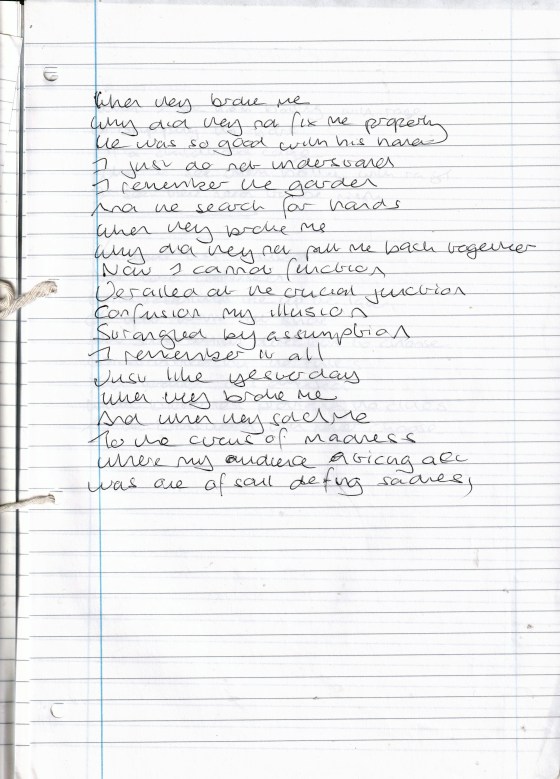 When they broke me
Why did they not fix me properly
He was so good with his hands
I just do not understand
I remember the garden
And the search for hands
When they broke me
Why did they not put me back together
Now I cannot function
Derailed at the crucial junction
Confusion my illusion
Strangled by assumption
I remember it all
Just like yesterday
When they broke me
And when they sold me
To the circus of madness
Where my audience
Was one of soul defying sadness